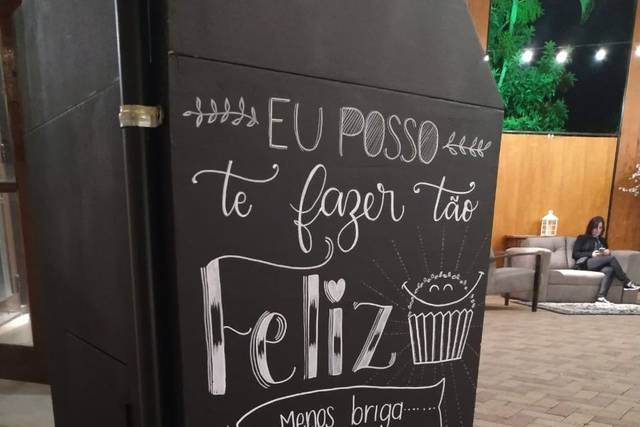 EU POSSO
te fazer tão
Feliz
Menos briga......